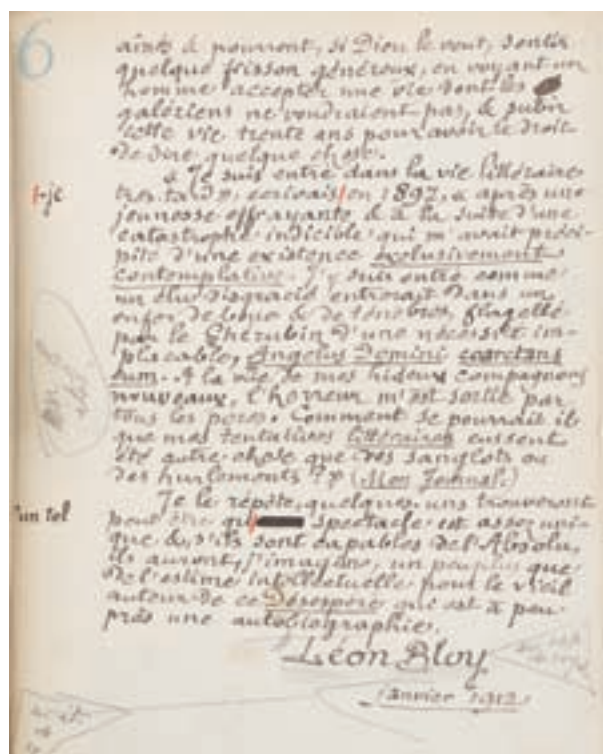 6
aînés & pourront, si Dieu le veut, sentir
quelque frisson généreux, en voyant un
homme accepter une vie dont les
galériens ne voudraient pas, & subir
cette vie trente ans pour avoir le droit
de dire quelque chose.
« Je suis entré dans la vie littéraire
très tard », écrivais en 1897, « après une
-je
jeunesse effrayante & à la suite d'une
catastrophe indicible qui m'avait préci-
pité d'une existence exclusivement
contemplative. J'y suis entré comme
un élu disgracié entrerait dans un
enfer de boue & de ténèbres, flagellé
par le Chérubin d'une nécessité im-
placable, Angelus Domini coarctans
eum. A la vue de mes hideux compagnons
nouveaux, l'horreur m'est sortie par
tous les pores. Comment se pourrait il
que mes tentatives littéraires eussent
été autre chose que des sanglots ou
des hurlements ? » (Mon Journal.)
Je le répète, quelques uns trouveront
un tel
peut être qu' spectacle est assez uni-
que &, s'ils sont capables de l'Absolu,
ils auront, j'imagine, un peu plus que
de l'estime intellectuelle pour le vieil
auteur de ce Désespéré qui est à peu
près une autobiographie.
Léon Bloy
Janvier 1912